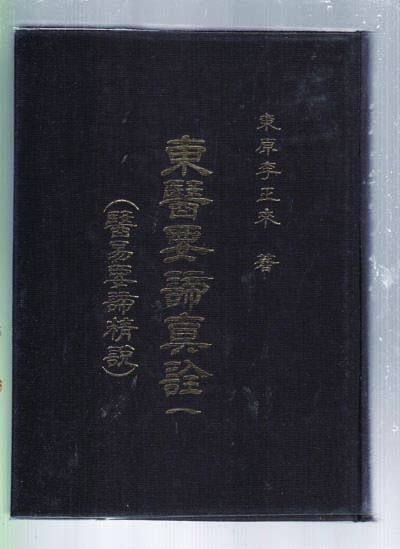 東原李正來 著
東醫要諦真詮 一
(醫易要諦精說)